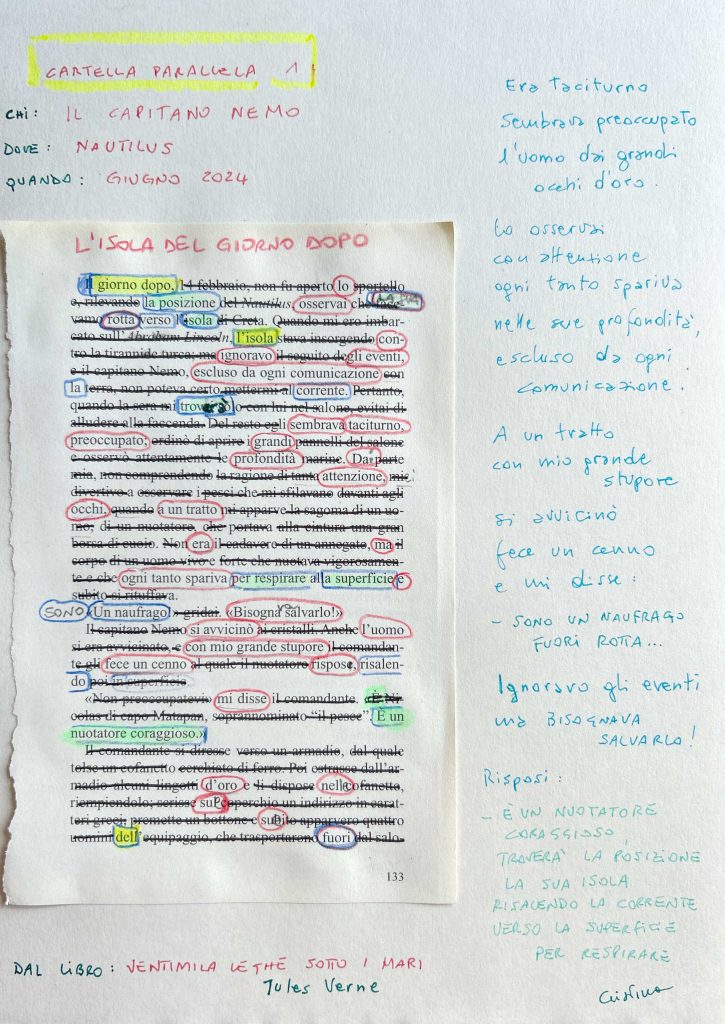 CARTELLA PARALLELA 1
CHI: IL CAPITANO NEMO
DOVE: NAUTILUS
QUANDO: GIUGNO 2024
L'ISOLA DEL GIORNO DOPO
Il giorno dopo, 14 febbraio, non fu aperto lo sportello
e, rilevando la posizione del Nautilus, osservai che face-
LA SUA
vamo rotta verso l'isola di Creta. Quando mi ero imbar-
cato sull'Abraham Lincoln, l'isola stava insorgendo con-
tro la tirannide turca; ma ignoravo il seguito degli eventi,
e il capitano Nemo, escluso da ogni comunicazione con
la terra, non poteva certo mettermi al corrente. Pertanto,
quando la sera mi trovai solo con lui nel salone, evitai di
alludere alla faccenda. Del resto egli sembrava taciturno,
preoccupato; ordinò di aprire i grandi pannelli del salone
e osservò attentamente le profondità marine. Da parte
mia, non comprendendo la ragione di tanta attenzione, mi
divertivo a osservare i pesci che mi sfilavano davanti agli
occhi, quando a un tratto mi apparve la sagoma di un uo-
mo, di un nuotatore, che portava alla cintura una gran
borsa di cuoio. Non era il cadavere di un annegato, ma il
corpo di un uomo vivo e forte che nuotava vigorosamen-
te e che ogni tanto spariva per respirare alla superficie e
subito si rituffava.
SONO «Un naufrago!» gridai. «Bisogna salvarlo!»
Il capitano Nemo si avvicinò ai cristalli. Anche l'uomo
si era avvicinato, e con mio grande stupore il comandan-
te gli fece un cenno al quale il nuotatore rispose, risalen-
do poi in superficie.
«Non preoccupatevi» mi disse il comandante. «È Ni-
colas di capo Matapan, soprannominato "il pesce". È un
nuotatore coraggioso.»
Il comandante si diresse verso un armadio, dal quale
tolse un cofanetto cerchiato di ferro. Poi estrasse dall'ar-
madio alcuni lingotti d'oro e li dispose nel cofanetto,
riempiendolo; scrisse sul coperchio un indirizzo in carat-
teri greci, premette un bottone e subito apparvero quattro
uomini dell'equipaggio, che trasportarono fuori dal salo-
133
DAL LIBRO: VENTIMILA LEGHE SOTTO I MARI
Jules Verne
Era taciturno
Sembrava preoccupato
l'uomo dai grandi
occhi d'oro.
Lo osservai
con attenzione
ogni tanto spariva
nelle sue profondità,
escluso da ogni
comunicazione.
A un tratto
con mio grande
stupore
si avvicinò
fece un cenno
e mi disse:
- SONO UN NAUFRAGO
FUORI ROTTA...
Ignoravo gli eventi
ma BISOGNAVA
SALVARLO!
Risposi:
- È UN NUOTATORE
CORAGGIOSO,
TROVERÀ LA POSIZIONE
LA SUA ISOLA
RISALENDO LA CORRENTE
VERSO LA SUPERFICIE
PER RESPIRARE
Cristina